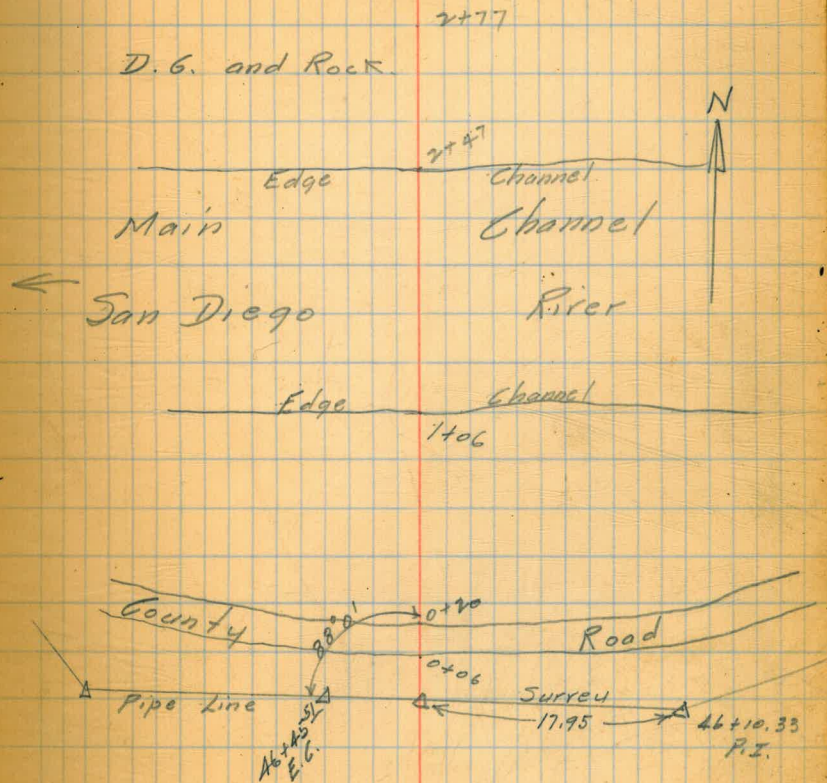 2+77
D.G. and Rock.
N
2+47
Edge Channel
Main Channel
San Diego River
Edge Channel
1+06
County Road
88°01'
0+20
0+06
Pipe Line Survey
17.95
46+10.33
P.I.
E.C.